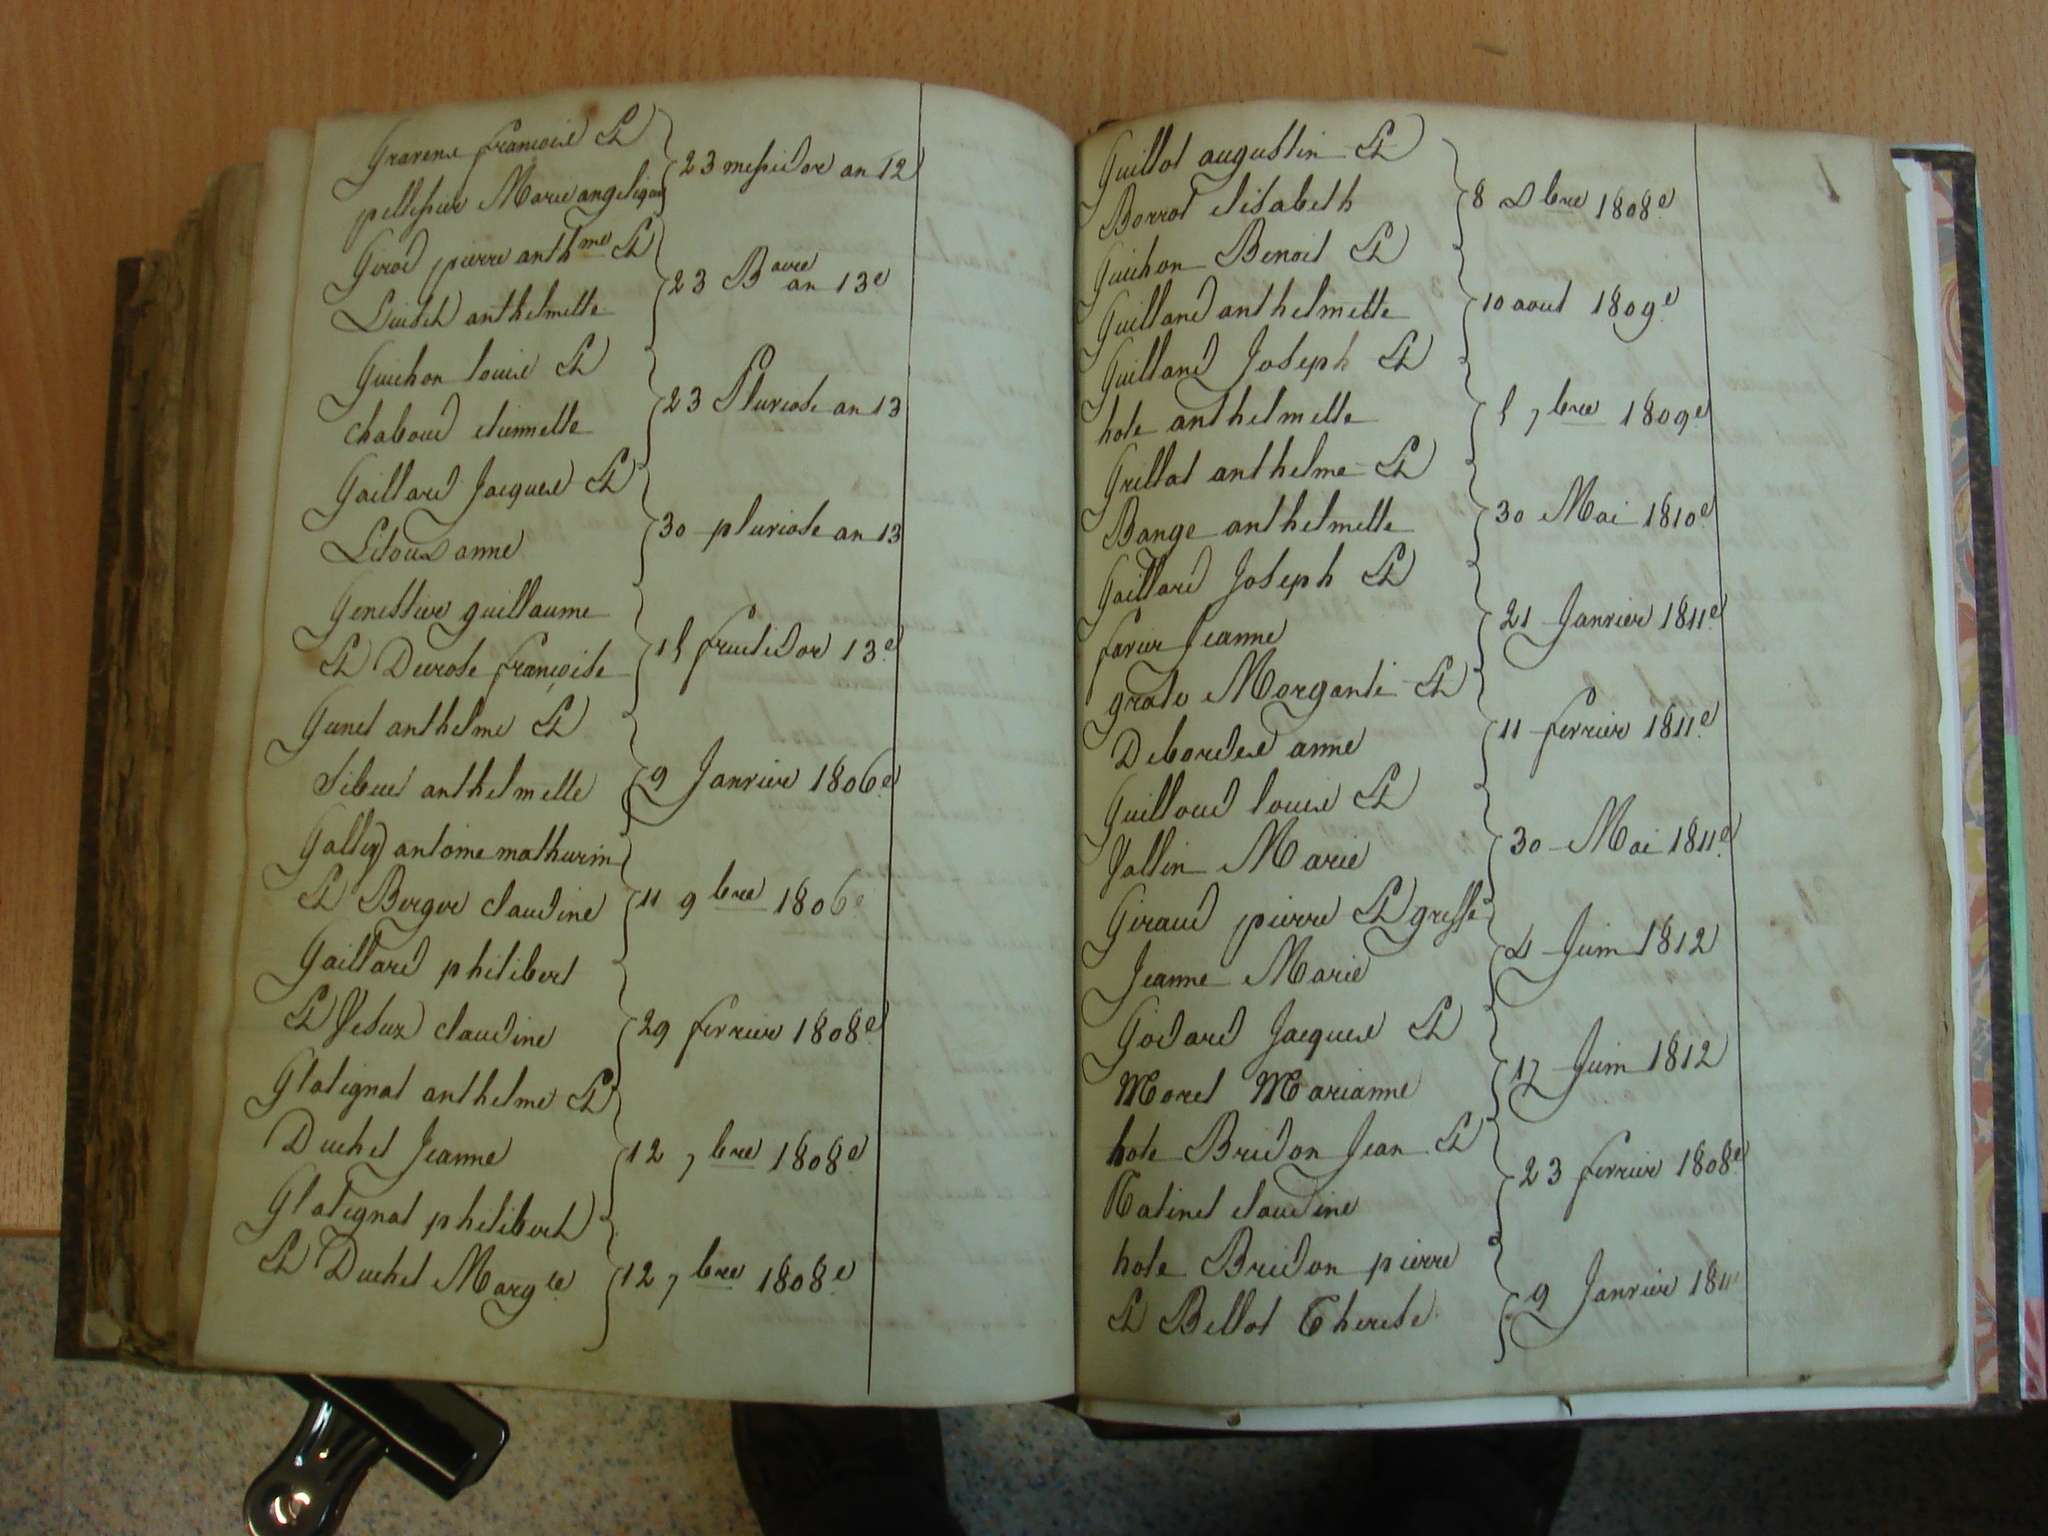 Gravend françois Et
pellissier Marie angelique
23 messidor an 12
Girod pierre anthme Et
Luiset anthelmette
23 Baire an 13e
Guichon louis Et
chaboud etiennette
23 Pluviose an 13
Gaillard Jacques Et
anne
30 pluviose an 13
Genestier guillaume
Et Derose françoise
15 fructidor 13e
Gunet anthelme Et
Sibue anthelmette
9 Janvier 1806e
Gallay antoine mathurin
Et Berger claudine
11 9bre 1806e
Gaillard philibert
Et Vesuz claudine
29 fevrier 1808e
Glatignat anthelme Et
Duchet Jeanne
12 7bre 1808e
Glatignat philibert
Et Duchet Margte
12 7bre 1808e
Guillot augustin Et
Borrot elisabeth
8 Dbre 1808e
Guichon Benoit Et
Guilland anthelmette
10 aout 1809e
Guilland Joseph Et
hote anthelmette
5 7bre 1809e
Grillat anthelme Et
Bange anthelmette
30 Mai 1810e
Gaillard Joseph Et
favier Jeanne
21 Janvier 1811e
grato Morganti Et
Debordes anne
11 fevrier 1811e
Guilloud louis Et
Jallin Marie
30 Mai 1811e
Giraud pierre Et griffe
Jeanne Marie
4 Juin 1812
Godard Jacques Et
Moret Marianne
17 Juin 1812
hote Bridon Jean Et
Ratinet claudine
23 fevrier 1808e
hote Bridon pierre
Et Bellot Therese
9 Janvier 1811